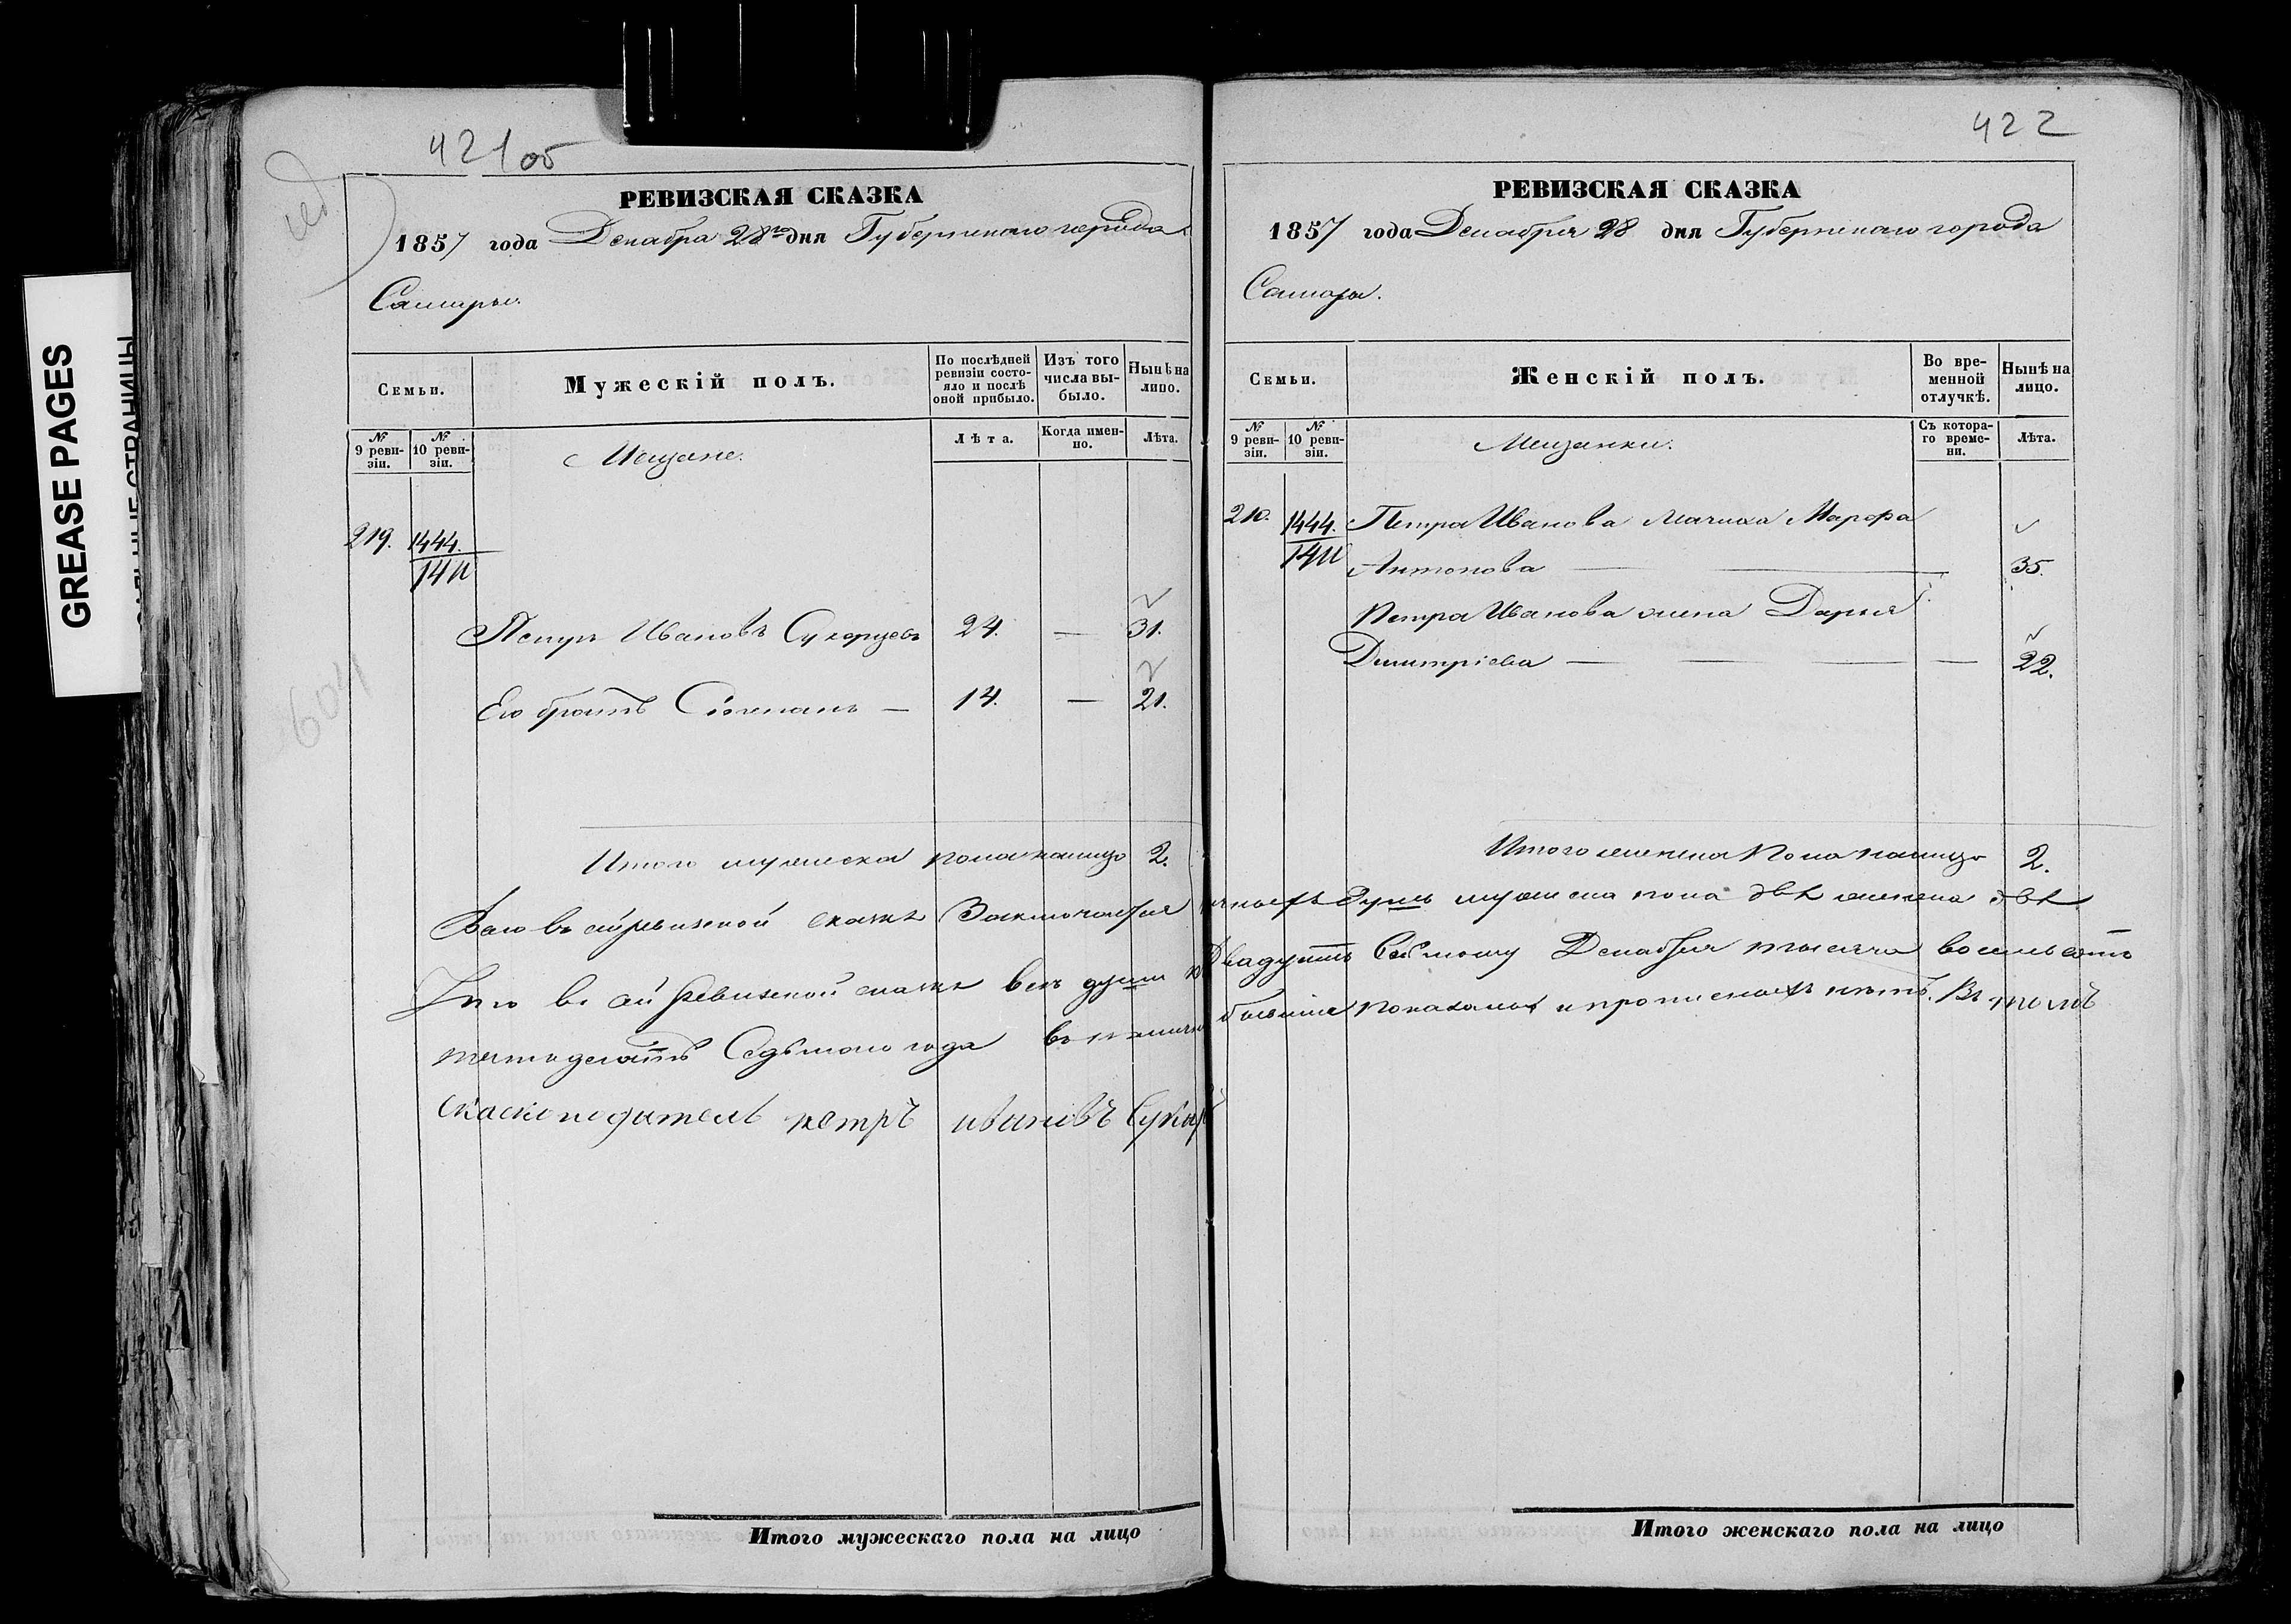 GREASE PAGES
421об
РЕВИЗСКАЯ СКАЗКА
1857 года Декабра 28го дня Губернскаго города
Самары.
Семьи.
Мужескій полъ.
По послѣдней ревизіи состояло и послѣ оной прибыло.
Изъ того числа выбыло.
Нынѣ на лицо.
№ 9 ревизіи.
№ 10 ревизіи.
Мещане.
Лѣта.
Когда именно.
Лѣта.
219. 1444.
1411
Петръ Ивановъ Сукорцевъ 24. — 31.
Его братъ Степанъ — 14. — 21.
Итого мужеска пола налицо 2.
Всего въ сей ревизской сказкѣ Заключается
Что въ сей Ревизской сказкѣ всѣ души
пятьдесятъ Седьмаго года въ
скаскоподатель петръ ивановъ
Итого мужескаго пола на лицо
604
422
РЕВИЗСКАЯ СКАЗКА
1857 года Декабря 28 дня Губернскаго города
Самары.
Семьи.
Женскій полъ.
Во временной отлучкѣ.
Нынѣ на лицо.
№ 9 ревизіи.
№ 10 ревизіи.
Мещанки.
Съ котораго времени.
Лѣта.
210. 1444. Петра Иванова мачиха Марфа
1411 Антонова — 35.
Петра Иванова жена Дарья
Димитріева — — — 22.
Итого женска пола налицо 2.
душъ мужеска пола двѣ женска двѣ
Двадцать Седьмому Декабря тысяча восемьсотъ
показаныхъ и прописныхъ нѣтъ. Въ томъ
Итого женскаго пола на лицо